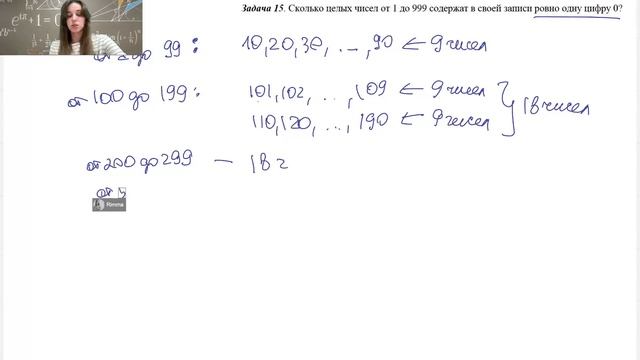 Задача 15. Сколько целых чисел от 1 до 999 содержат в своей записи ровно одну цифру 0?
до 99 : 10, 20, 30, ..., 90 ← 9 чисел
от 100 до 199 : 101, 102, ..., 109 ← 9 чисел
110, 120, ..., 190 ← 9 чисел } 18 чисел
от 200 до 299 — 18 ч
от
Rimma